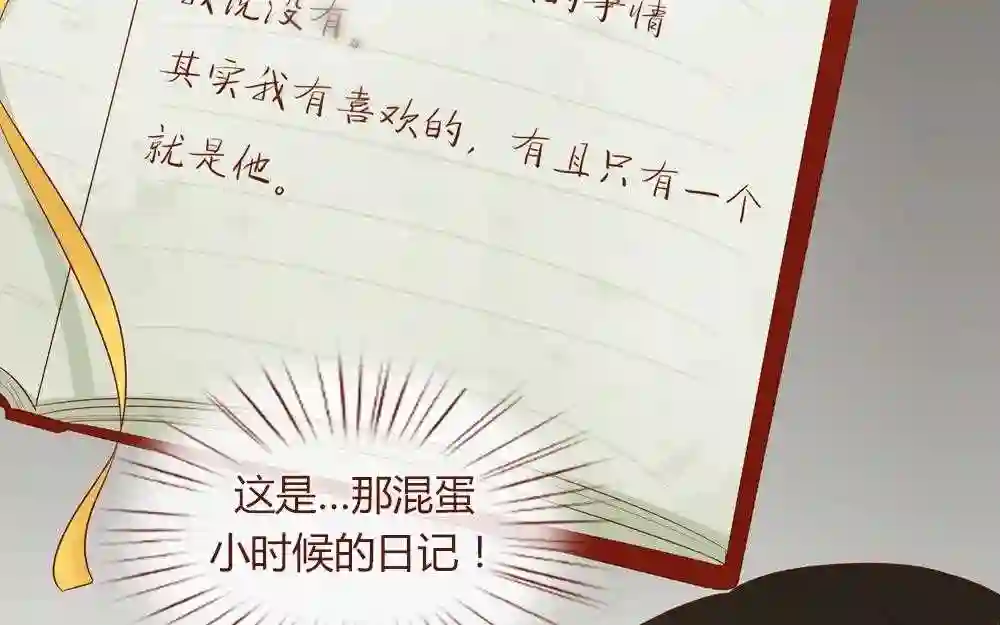 我说没有。 的事情
其实我有喜欢的，有且只有一个
就是他。
这是...那混蛋
小时候的日记！